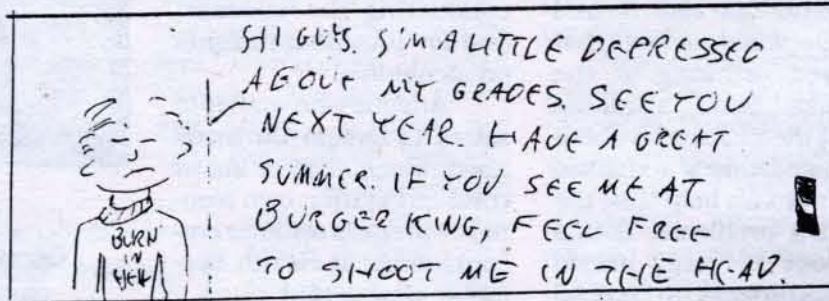 HI GUYS. I'M A LITTLE DEPRESSED
ABOUT MY GRADES. SEE YOU
NEXT YEAR. HAVE A GREAT
SUMMER. IF YOU SEE ME AT
BURGER KING, FEEL FREE
TO SHOOT ME IN THE HEAD.
BURN
IN
HELL